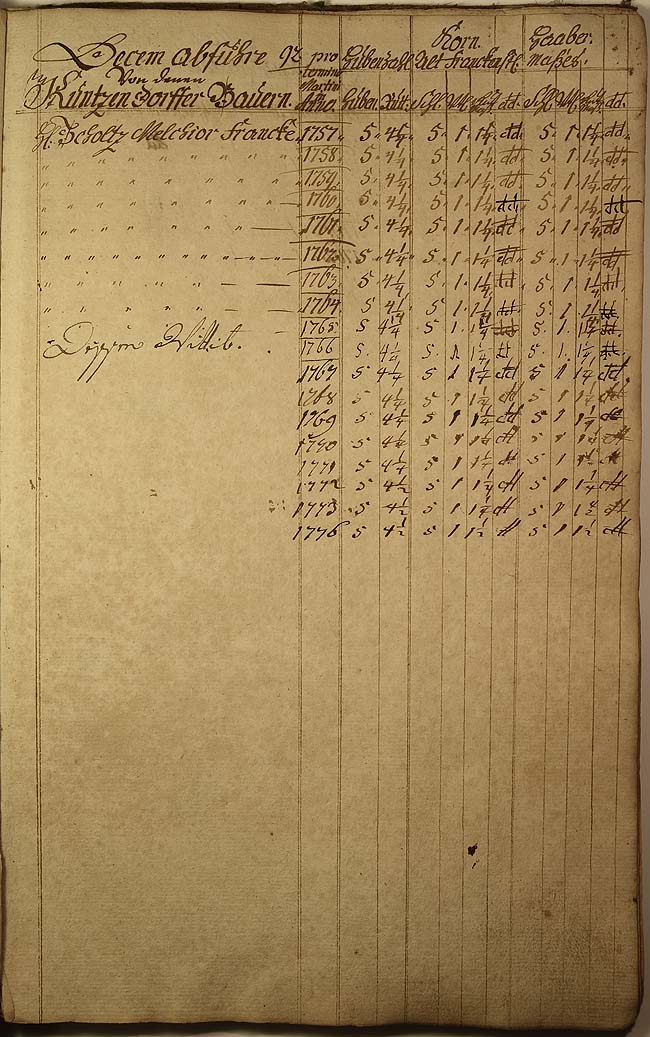 Decem Abführe pro Hübenzahl Korn. Haaber.
Von denen termino Alt Franckenst. Maßes.
Küntzendorffer Bauern. Martini Huben. Rutt. Schl. dd. Schl. dd.
H. Scholtz Melchior Francke. 1757. 5. 4¼. 5. 1. 1¼. dd. 5. 1. 1¼. dd.
" " " " " " " 1758. 5. 4¼. 5. 1. 1¼. dd. 5. 1. 1¼. dd.
" " " " " " " 1759. 5. 4¼. 5. 1. 1¼. dd. 5. 1. 1¼. dd.
" " " " " " " 1760. 5. 4¼. 5. 1. 1¼. dd. 5. 1. 1¼. dd.
" " " " " " 1761. 5. 4¼. 5. 1. 1¼. dd. 5. 1. 1¼. dd.
" " " " " " " 1762. 5. 4¼. 5. 1. 1¼. dd. 5. 1. 1¼. dd.
" " " " " 1763. 5. 4¼. 5. 1. 1¼. dd. 5. 1. 1¼. dd.
" " " " " 1764. 5. 4¼. 5. 1. 1¼. dd. 5. 1. 1¼. dd.
1765 5. 4¼ 5. 1. 1¼ dd. 5. 1. 1¼ dd.
Deßen Wittib. 1766 5. 4¼ 5. 1 1¼ dd 5. 1. 1¼ dd.
1767 5 4¼ 5 1 1¼ dd 5 1 1¼ dd
1768 5 4¼ 5 1 1¼ dd 5 1 1¼ dd
1769 5 4¼ 5 1 1¼ dd 5 1 1¼ dd
1770 5 4¼ 5 1 1¼ dd 5 1 1¼ dd
1771 5 4¼ 5 1 1¼ dd 5 1 1½ dd
1772 5 4½ 5 1 1¼ dd 5 1 1¼ dd
1773 5 4½ 5 1 1¼ dd 5 1 1½ dd
1776 5 4½ 5 1 1½ dd 5 1 1½ dd